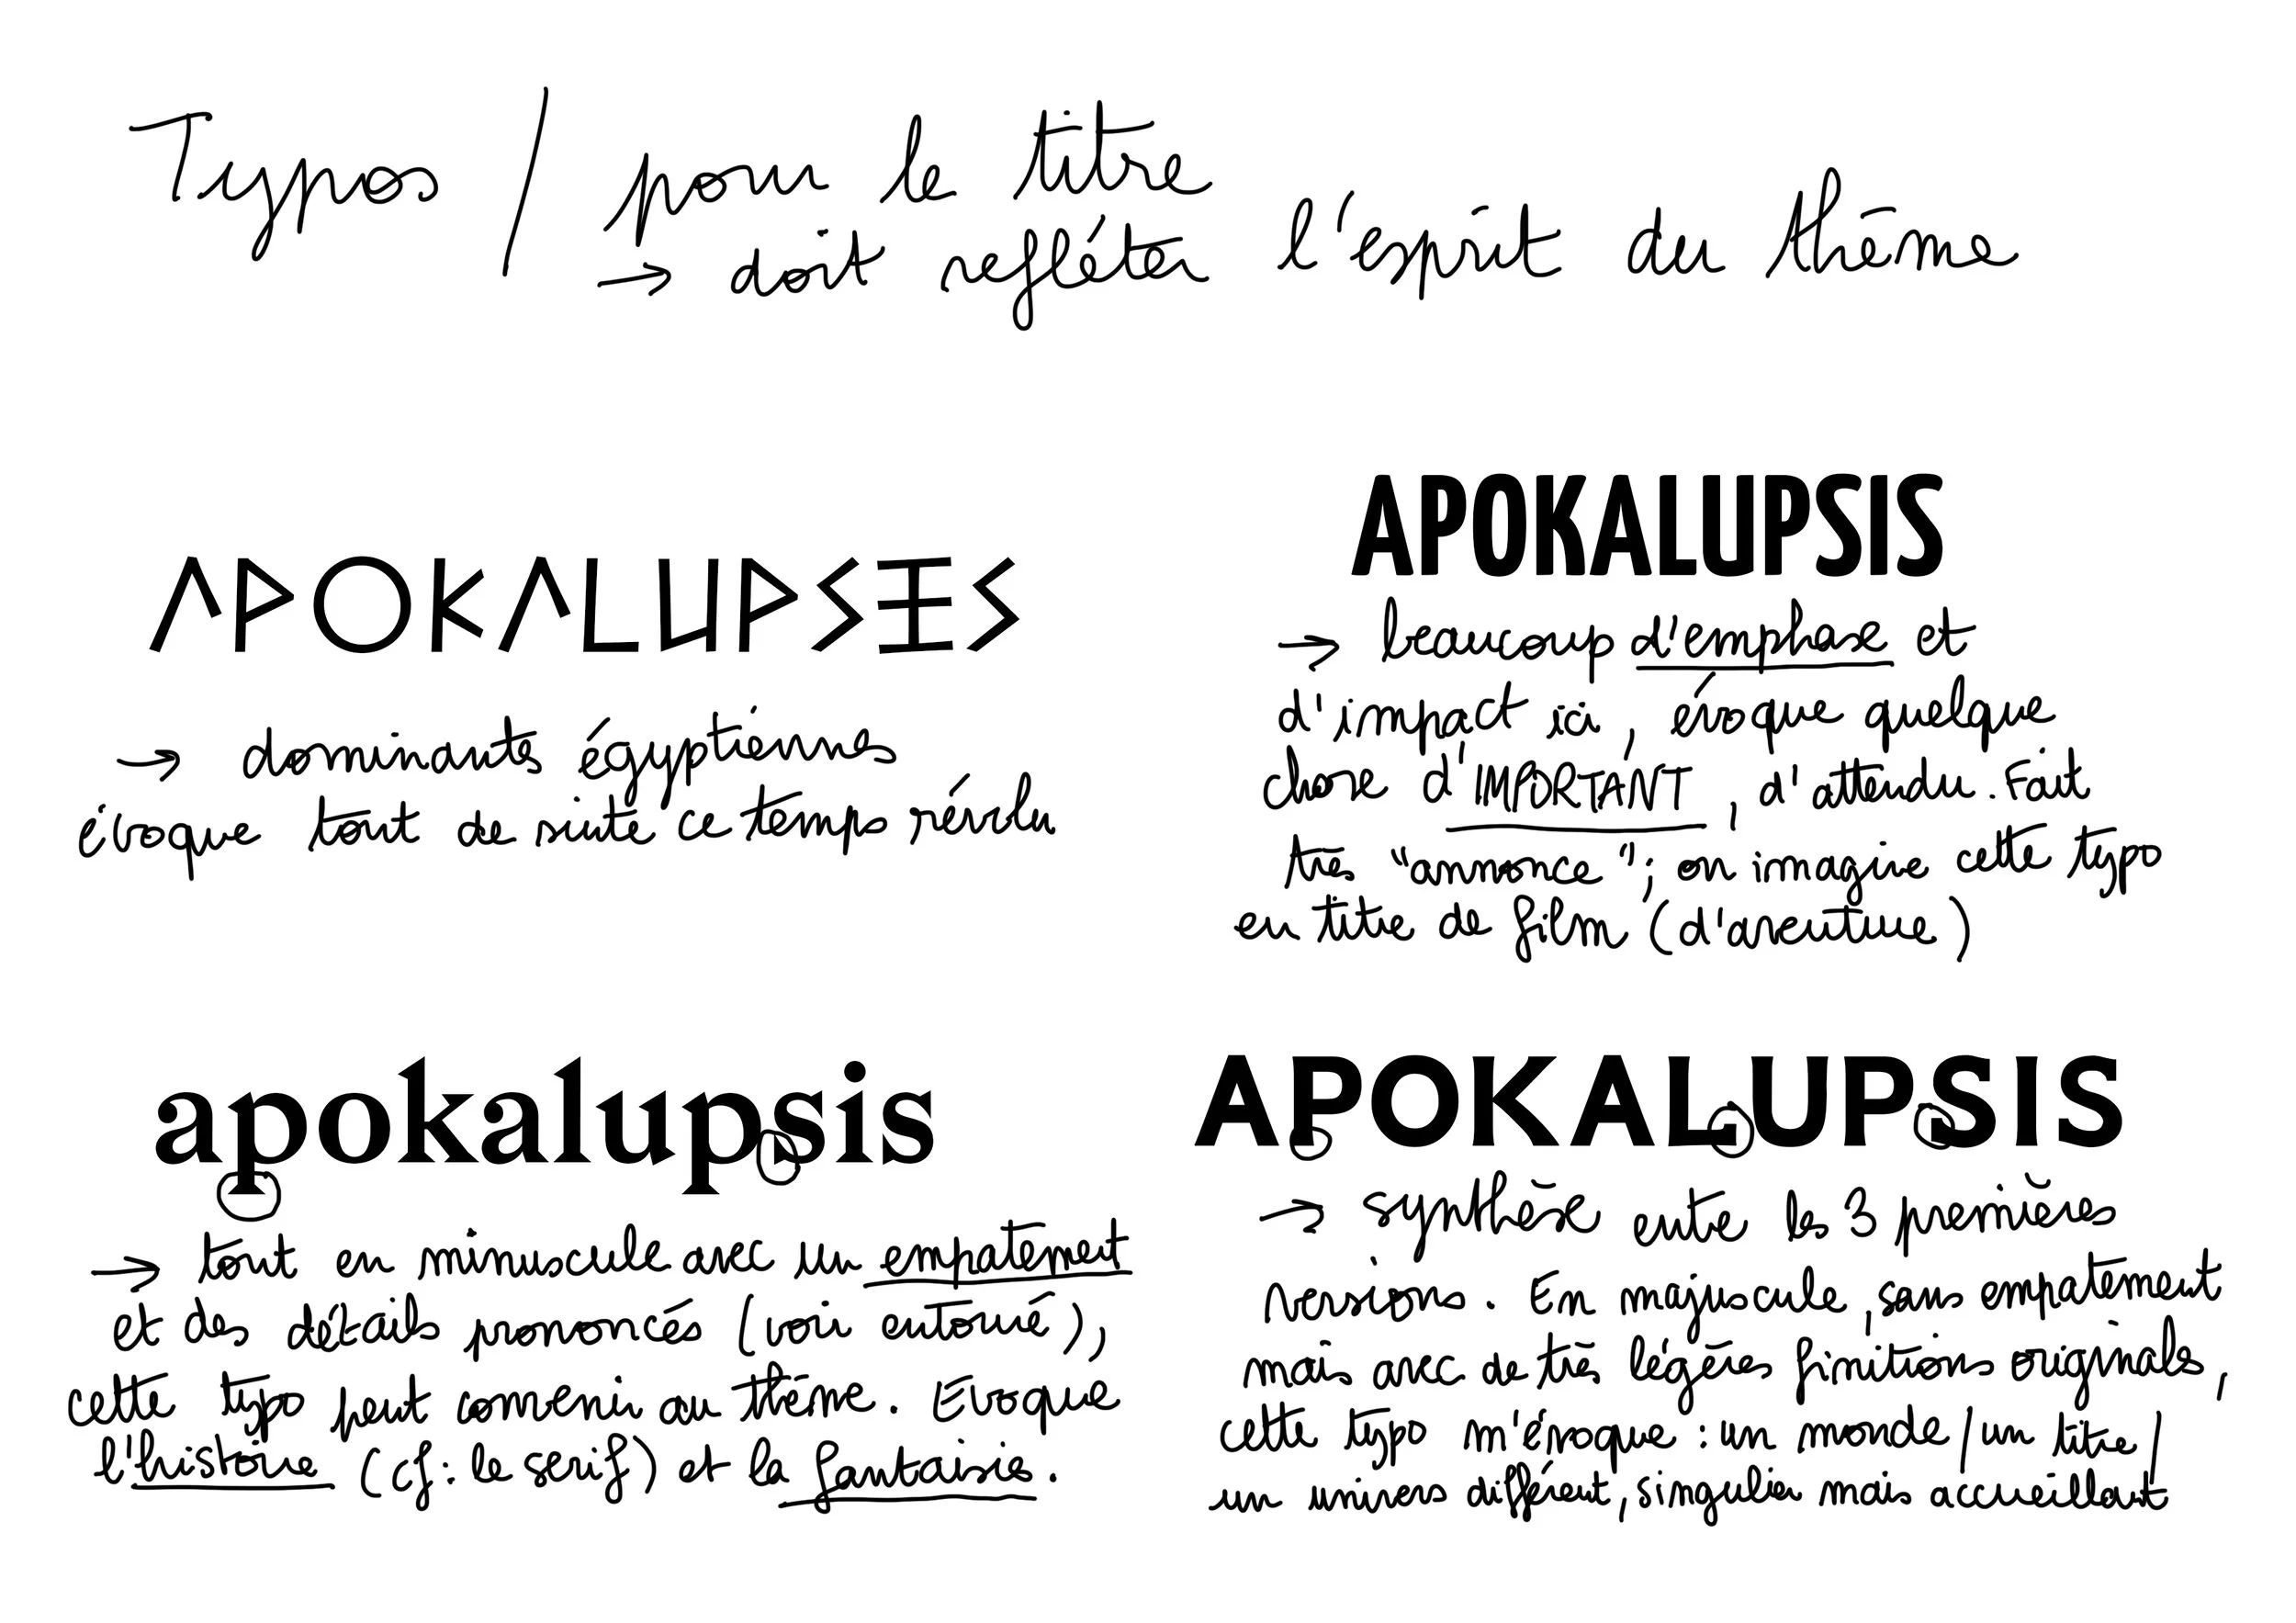 Typos / pour le titre
→ doit refléter l'esprit du thème
APOKALUPSIS
→ dominants égyptiennes
évoque tout de suite ce temps révolu
APOKALUPSIS
→ beaucoup d'emphase et
d'impact ici, évoque quelque
chose d'IMPORTANT, d'attendu. Fait
très "annonce"; on imagine cette typo
en titre de film (d'aventure)
apokalupsis
→ tout en minuscule avec un empatement
et des détails prononcés (voir entouré),
cette typo peut convenir au thème. Evoque
l'histoire (cf: le serif) et la fantaisie.
APOKALUPSIS
→ synthèse entre les 3 premières
versions. En majuscule, sans empatement
mais avec de très légères finitions originales,
cette typo m'évoque : un monde/un titre/
un univers différent, singulier mais accueillant